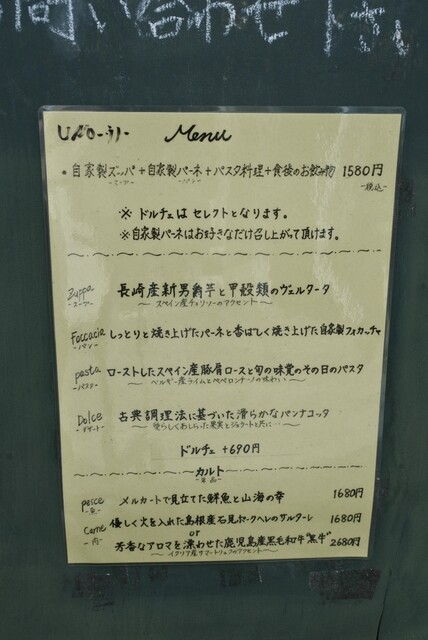 問い合わせ下さい
Menu
• 自家製ズッパ+自家製パーネ+パスタ料理+食後のお飲み物 1580円
-スープ- -パン- -税込-
※ ドルチェは セレクトとなります。
※自家製パーネはお好きなだけ召し上がって頂けます。
Zuppa
-スープ-
長崎産新男爵芋と甲殻類のヴェルタータ
〜 スペイン産チョリソーのアクセント 〜
Foccacia
-パン-
しっとりと焼き上げたパーネと香ばしく焼き上げた自家製フォカッチャ
pasta
-パスタ-
ローストしたスペイン産豚肩ロースと旬の味覚のその日のパスタ
〜 ベルギー産ライムとペペロンチーノの味わい 〜
Dolce
-デザート-
古典調理法に基づいた滑らかなパンナコッタ
〜 愛らしくあしらった果実とジェラートと共に… 〜
ドルチェ +690円
カルト
-単品-
pesce
-魚-
メルカートで見立てた鮮魚と山海の幸 1680円
Carne
-肉-
優しく火を入れた島根産石見ポークヘレのサルターレ 1680円
or
芳香なアロマを漂わせた鹿児島産黒毛和牛"黒牛" 2680円
〜 イタリア産サマートリュフのアクセント 〜